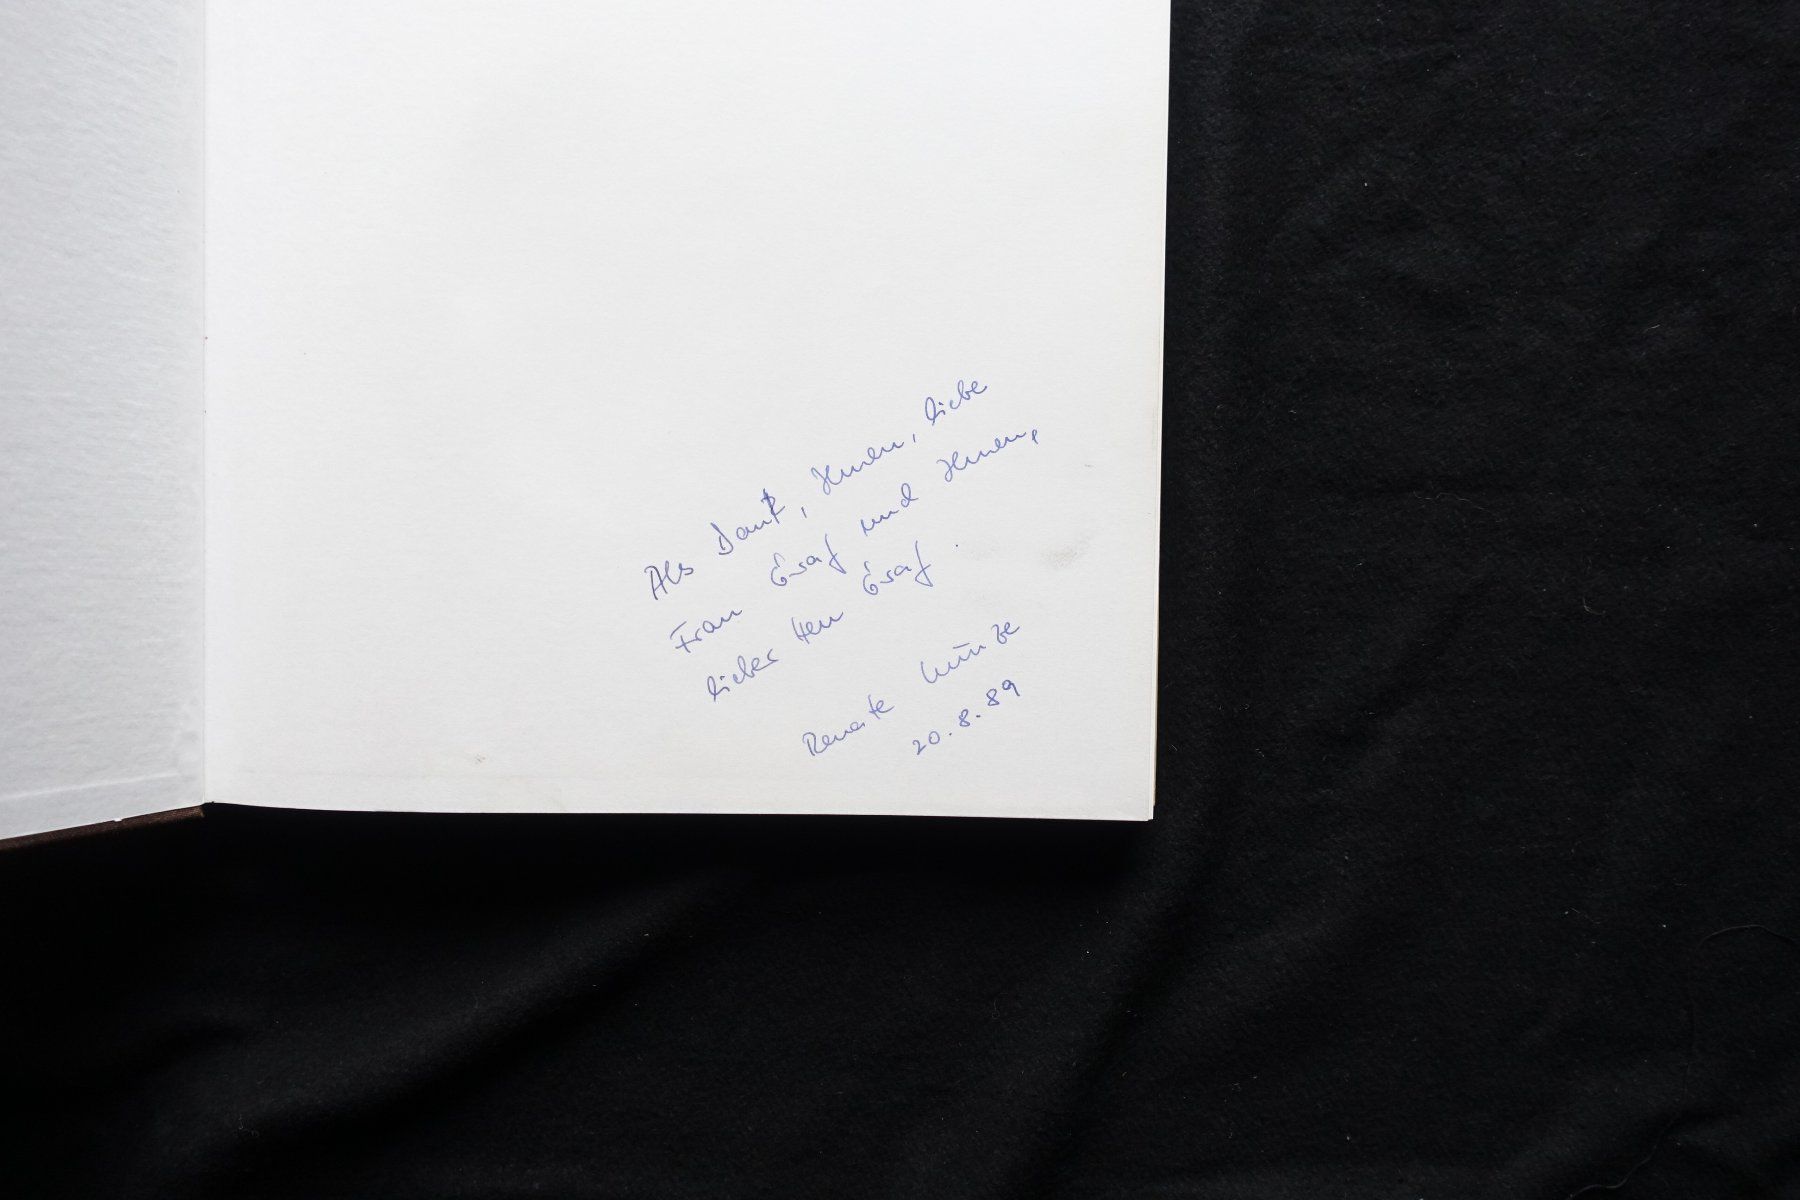 Als Dank, Ihnen, liebe
Frau Graf und Ihnen,
lieber Herr Graf.
Renate
20.8.89